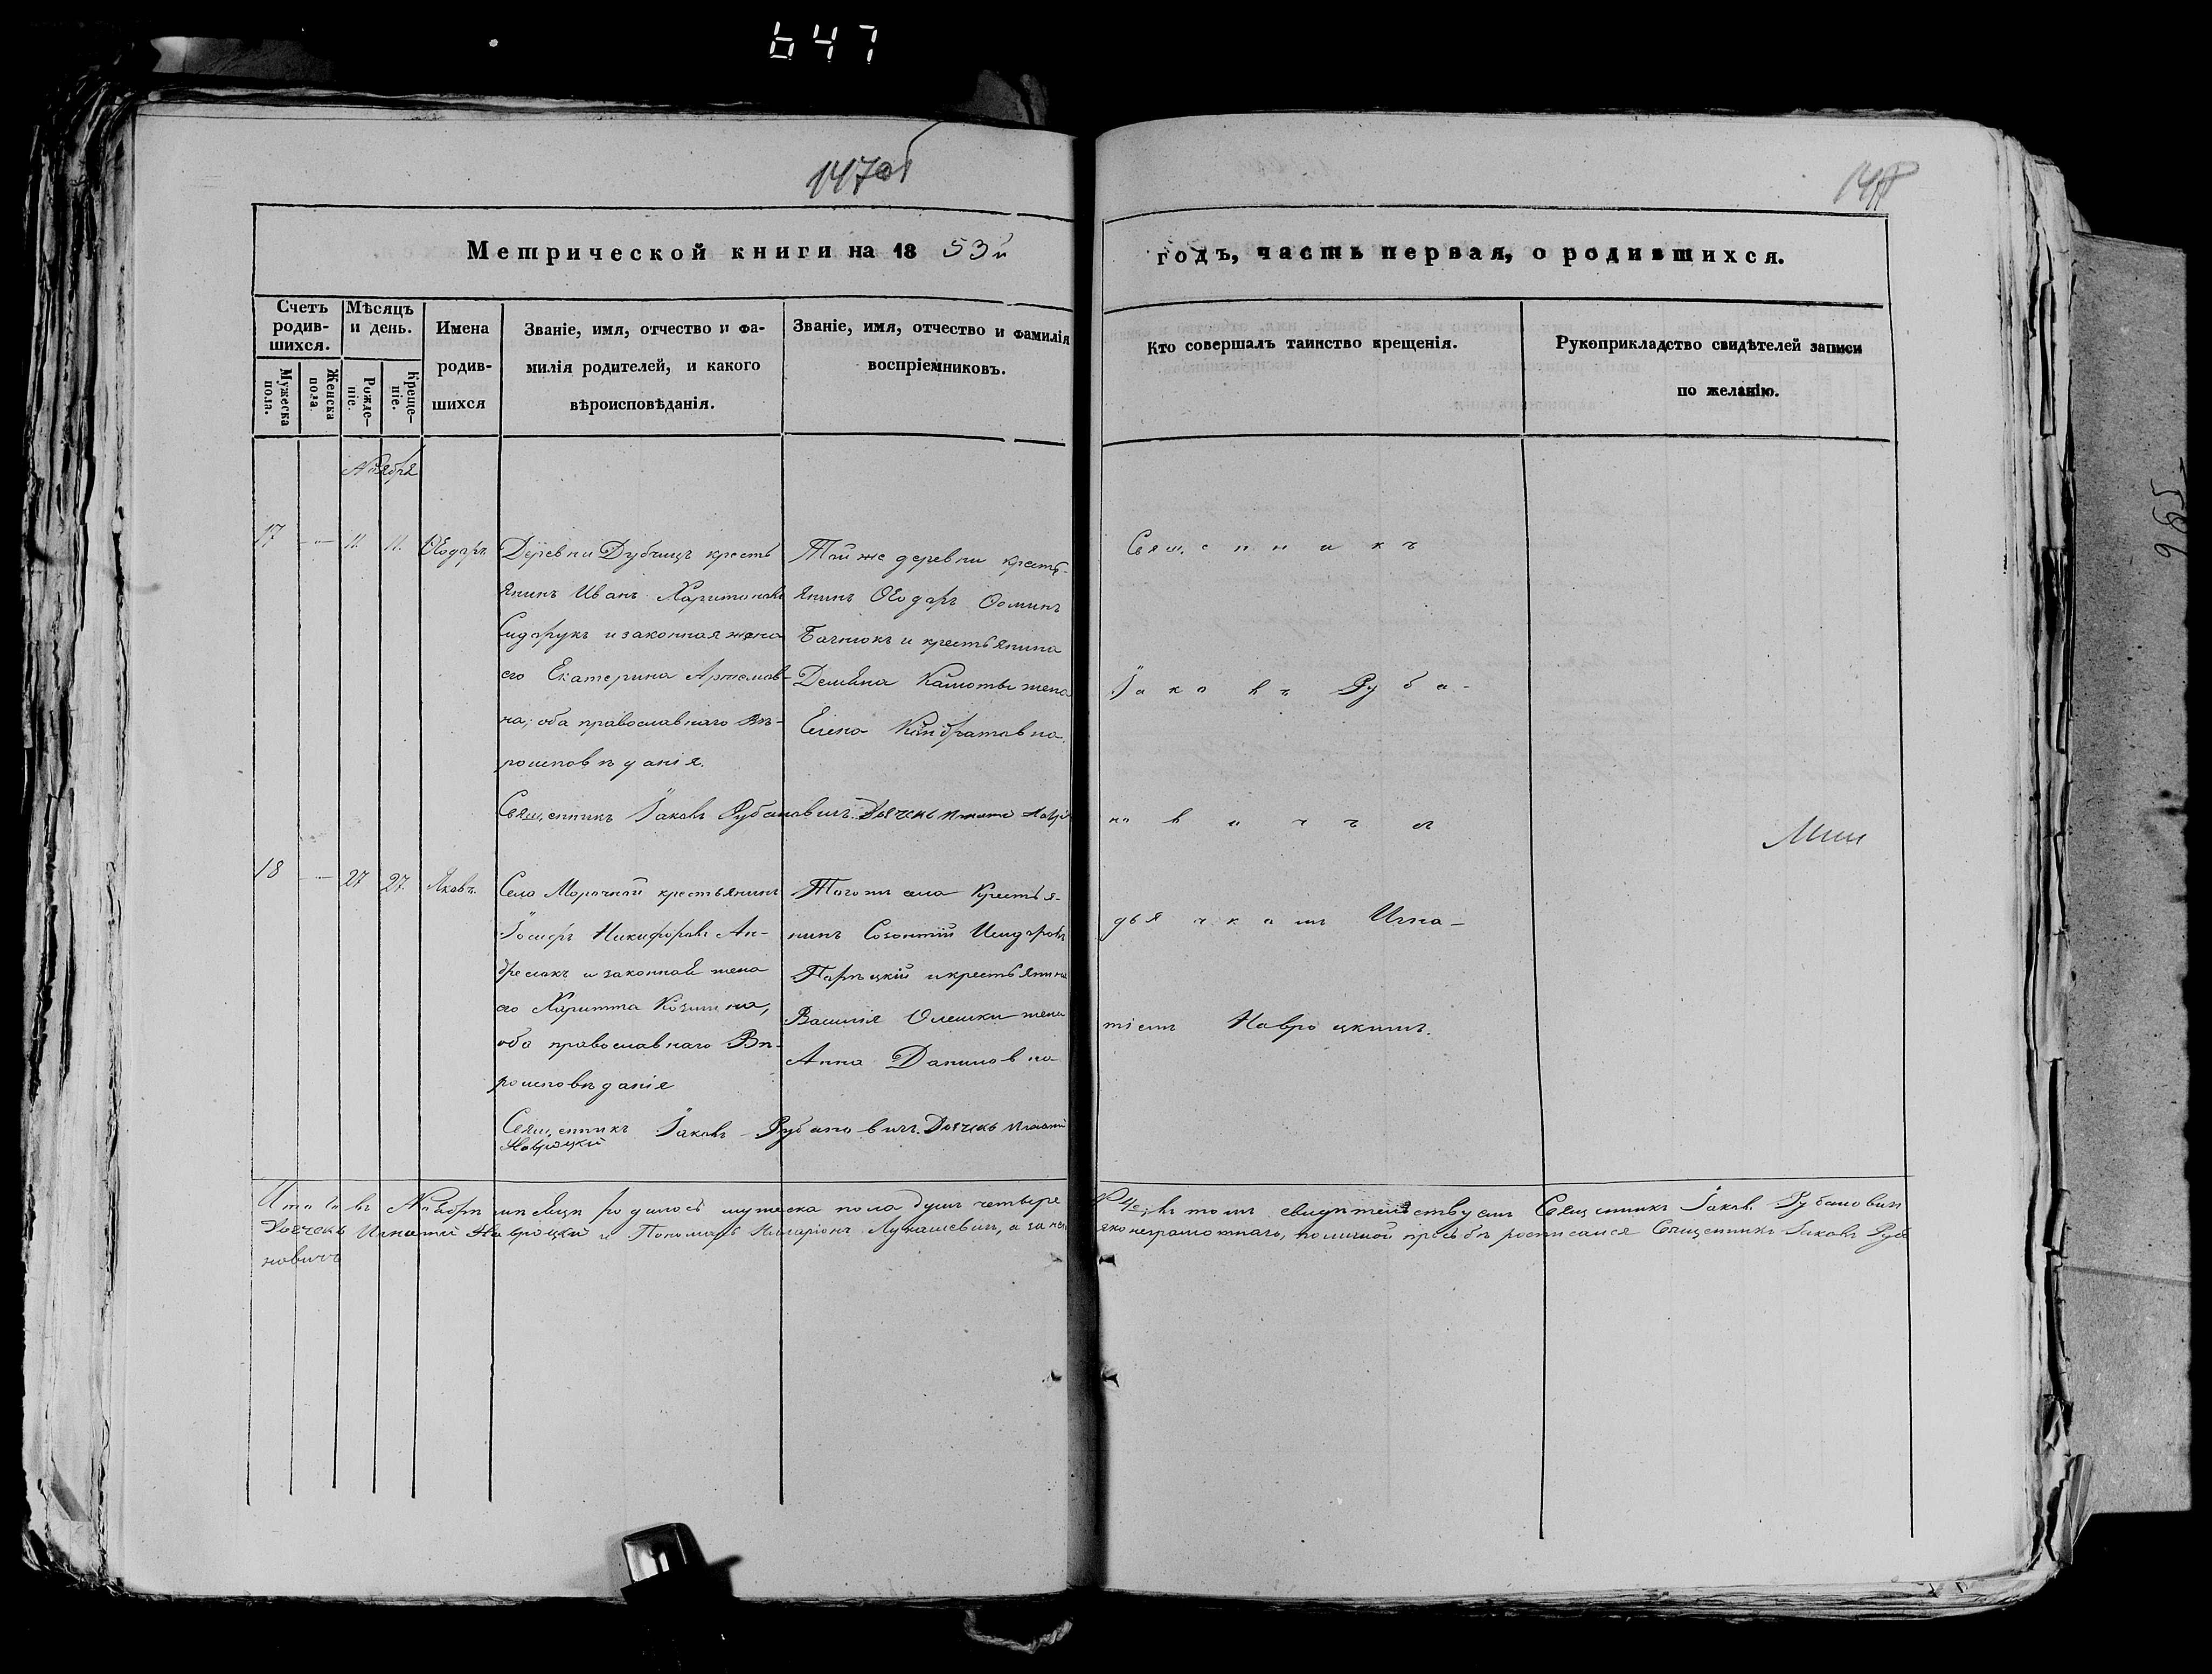 647
147об
148
Метрической книги на 18 53й годъ, часть первая, о родившихся.
Счетъ родив-шихся.
Мужеска пола.
Женска пола.
Мѣсяцъ и день.
Рожде-ніе.
Креще-ніе.
Имена родив-шихся
Званіе, имя, отчество и фа-
милія родителей, и какого
вѣроисповѣданія.
Званіе, имя, отчество и фамилія
воспріемниковъ.
Кто совершалъ таинство крещенія.
Рукоприкладство свидѣтелей записи
по желанію.
Ноября
17 — 11. 11. Ѳеодоръ
Деревни Дубчицъ кресть
янинъ Иванъ Харитоновъ
Сидорукъ и законная жена
его Екатерина Артемов-
на, оба православнаго Вѣ-
роисповѣданія.
Той же деревни кресть-
янинъ Ѳеодоръ Ѳоминъ
и крестьянина
жена
Елена Кондратовна.
Священникъ Іаковъ Рубановичъ. Дьячекъ Игнатій
18 — 27 27. Яковъ
Села Морочной крестьянинъ
Іосифъ Никифоровъ Ан-
и законная жена
его Харитина Козмина,
оба православнаго Вѣ-
роисповѣданія
Тогожъ села Крестья-
нинъ Созонтій
и крестьянина
Василія Олешки жена
Анна Даниловна
Священникъ Іаковъ Рубановичъ. Дьячекъ Игнатій
Навроцкій
Священникъ
Іаковъ Руба-
новичъ съ
дьячкомъ Игна-
тіемъ Навроцкимъ.
Итого въ Ноябрѣ мѣсяцѣ родилось мужеска пола душъ четыре № 4й въ томъ свидѣтельствуемъ Священникъ Іаковъ Рубановичъ
Дьячекъ Игнатій Навроцкій и Пономарь Илларіонъ Лукашевичъ, а за него яко неграмотнаго, по личной просьбѣ росписался Священникъ Іаковъ Руба
новичъ
596